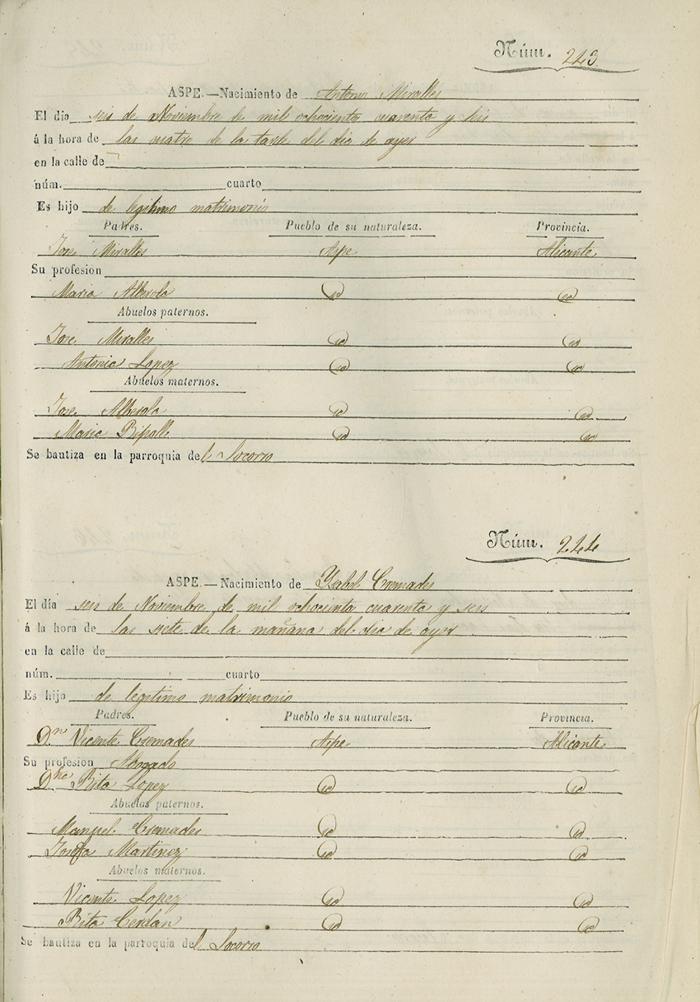 Núm. 243
ASPE.—Nacimiento de Antonio Miralles
El día seis de Noviembre de mil ochociento cuarenta y seis
á la hora de las cuatro de la tarde del dia de ayer
en la calle de
núm. cuarto
Es hijo de legitimo matrimonio
Padres. Pueblo de su naturaleza. Provincia.
Jose Miralles Aspe Alicante
Su profesion
Maria Alberola id id
Abuelos paternos.
Jose Miralles id id
Antonia Lopez id id
Abuelos maternos.
Jose Alberola id id
Maria Ripoll id id
Se bautiza en la parroquia del Socorro
Núm. 244
ASPE.—Nacimiento de Ysabel Cremades
El día seis de Noviembre de mil ochocientos cuarenta y seis
á la hora de las siete de la mañana del dia de ayer
en la calle de
núm. cuarto
Es hijo de legitimo matrimonio
Padres. Pueblo de su naturaleza. Provincia.
Dn Vicente Cremades Aspe Alicante
Su profesion Abogado
Dña Rita Lopez id id
Abuelos paternos.
Manuel Cremades id id
Josefa Martinez id id
Abuelos maternos.
Vicente Lopez id id
Rita Cerdán id id
Se bautiza en la parroquia del Socorro